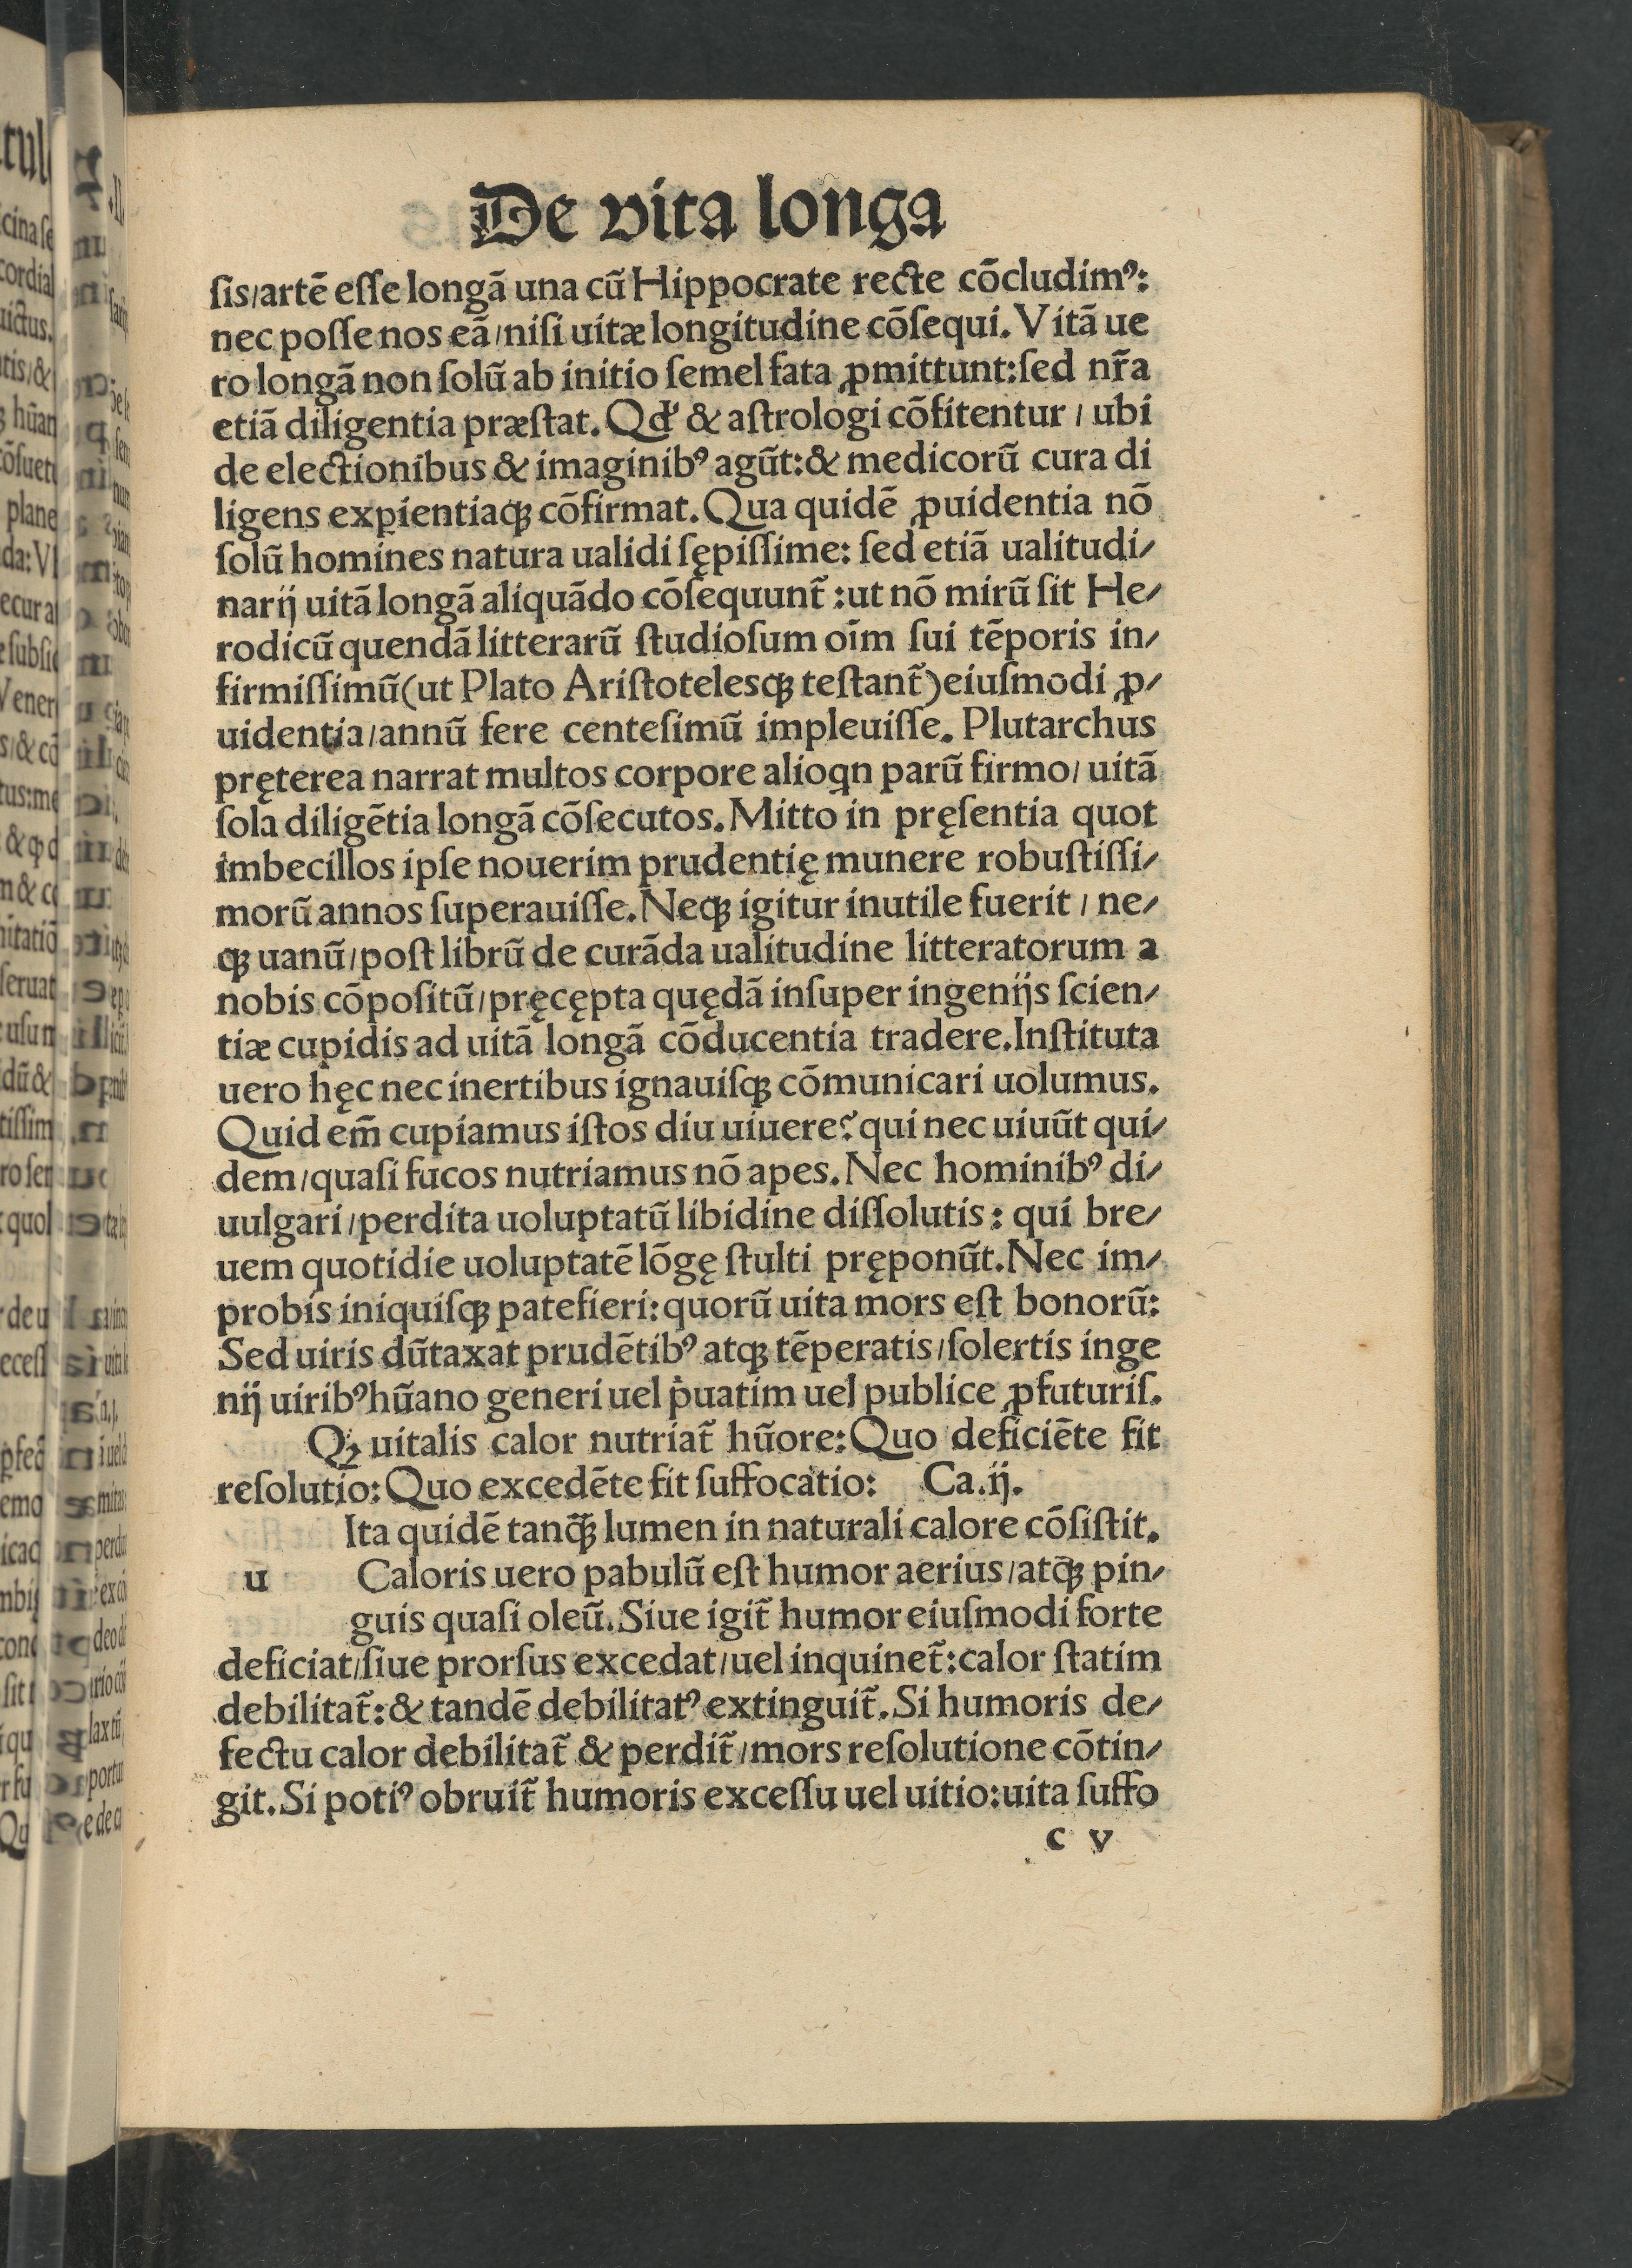 De vita longa
ſis/artē eſſe longā una cū Hippocrate recte cōcludimꝰ:
nec poſſe nos eā/niſi uitæ longitudine cōſequi. Vitā ue
ro longā non ſolū ab initio ſemel fata ꝓmittunt:ſed nr̄a
etiā diligentia præſtat. Qđ & aſtrologi cōfitentur / ubi
de electionibus & imaginibꝰ agūt:& medicorū cura di
ligens exꝑientiaqꝫ cōfirmat. Qua quidē ꝓuidentia nō
ſolū homines natura ualidi ſępiſſime: ſed etiā ualitudi/
narij uitā longā aliquādo cōſequunt̄ :ut nō mirū ſit He/
rodicū quendā litterarū ſtudioſum oīm ſui tēporis in/
firmiſſimū(ut Plato Ariſtotelesqꝫ teſtant̄)eiuſmodi ꝓ/
uidentia/annū fere centeſimū impleuiſſe. Plutarchus
pręterea narrat multos corpore alioqn parū firmo/ uitā
ſola diligētia longā cōſecutos. Mitto in pręſentia quot
imbecillos ipſe nouerim prudentię munere robuſtiſſi/
morū annos ſuperauiſſe. Neqꝫ igitur inutile fuerit / ne/
qꝫ uanū/poſt librū de curāda ualitudine litteratorum a
nobis cōpoſitū/pręcępta quędā inſuper ingenijs ſcien/
tiæ cupidis ad uitā longā cōducentia tradere. Inſtituta
uero hęc nec inertibus ignauiſqꝫ cōmunicari uolumus.
Quid em̄ cupiamus iſtos diu uiuere? qui nec uiuūt qui/
dem/quaſi fucos nutriamus nō apes. Nec hominibꝰ di/
uulgari/perdita uoluptatū libidine diſſolutis: qui bre/
uem quotidie uoluptatē lōgę ſtulti pręponūt. Nec im/
probis iniquiſqꝫ patefieri:quorū uita mors eſt bonorū:
Sed uiris dūtaxat prudētibꝰ atqꝫ tēperatis/ſolertis inge
nij uiribꝰ hūano generi uel p̍uatim uel publice ꝓfuturiſ.
Qꝫ uitalis calor nutriat̄ hūore:Quo deficiēte fit
reſolutio:Quo excedēte fit ſuffocatio: Ca.ij.
Ita quidē tanq̄ꝫ lumen in naturali calore cōſiſtit.
u Caloris uero pabulū eſt humor aerius/atq̄ꝫ pin/
guis quaſi oleū. Siue igit̄ humor eiuſmodi forte
deficiat/ſiue prorſus excedat/uel inquinet̄:calor ſtatim
debilitat̄:& tandē debilitatꝰ extinguit̄. Si humoris de/
fectu calor debilitat̄ & perdit̄/mors reſolutione cōtin/
git. Si potiꝰ obruit̄ humoris exceſſu uel uitio:uita ſuffo
c v